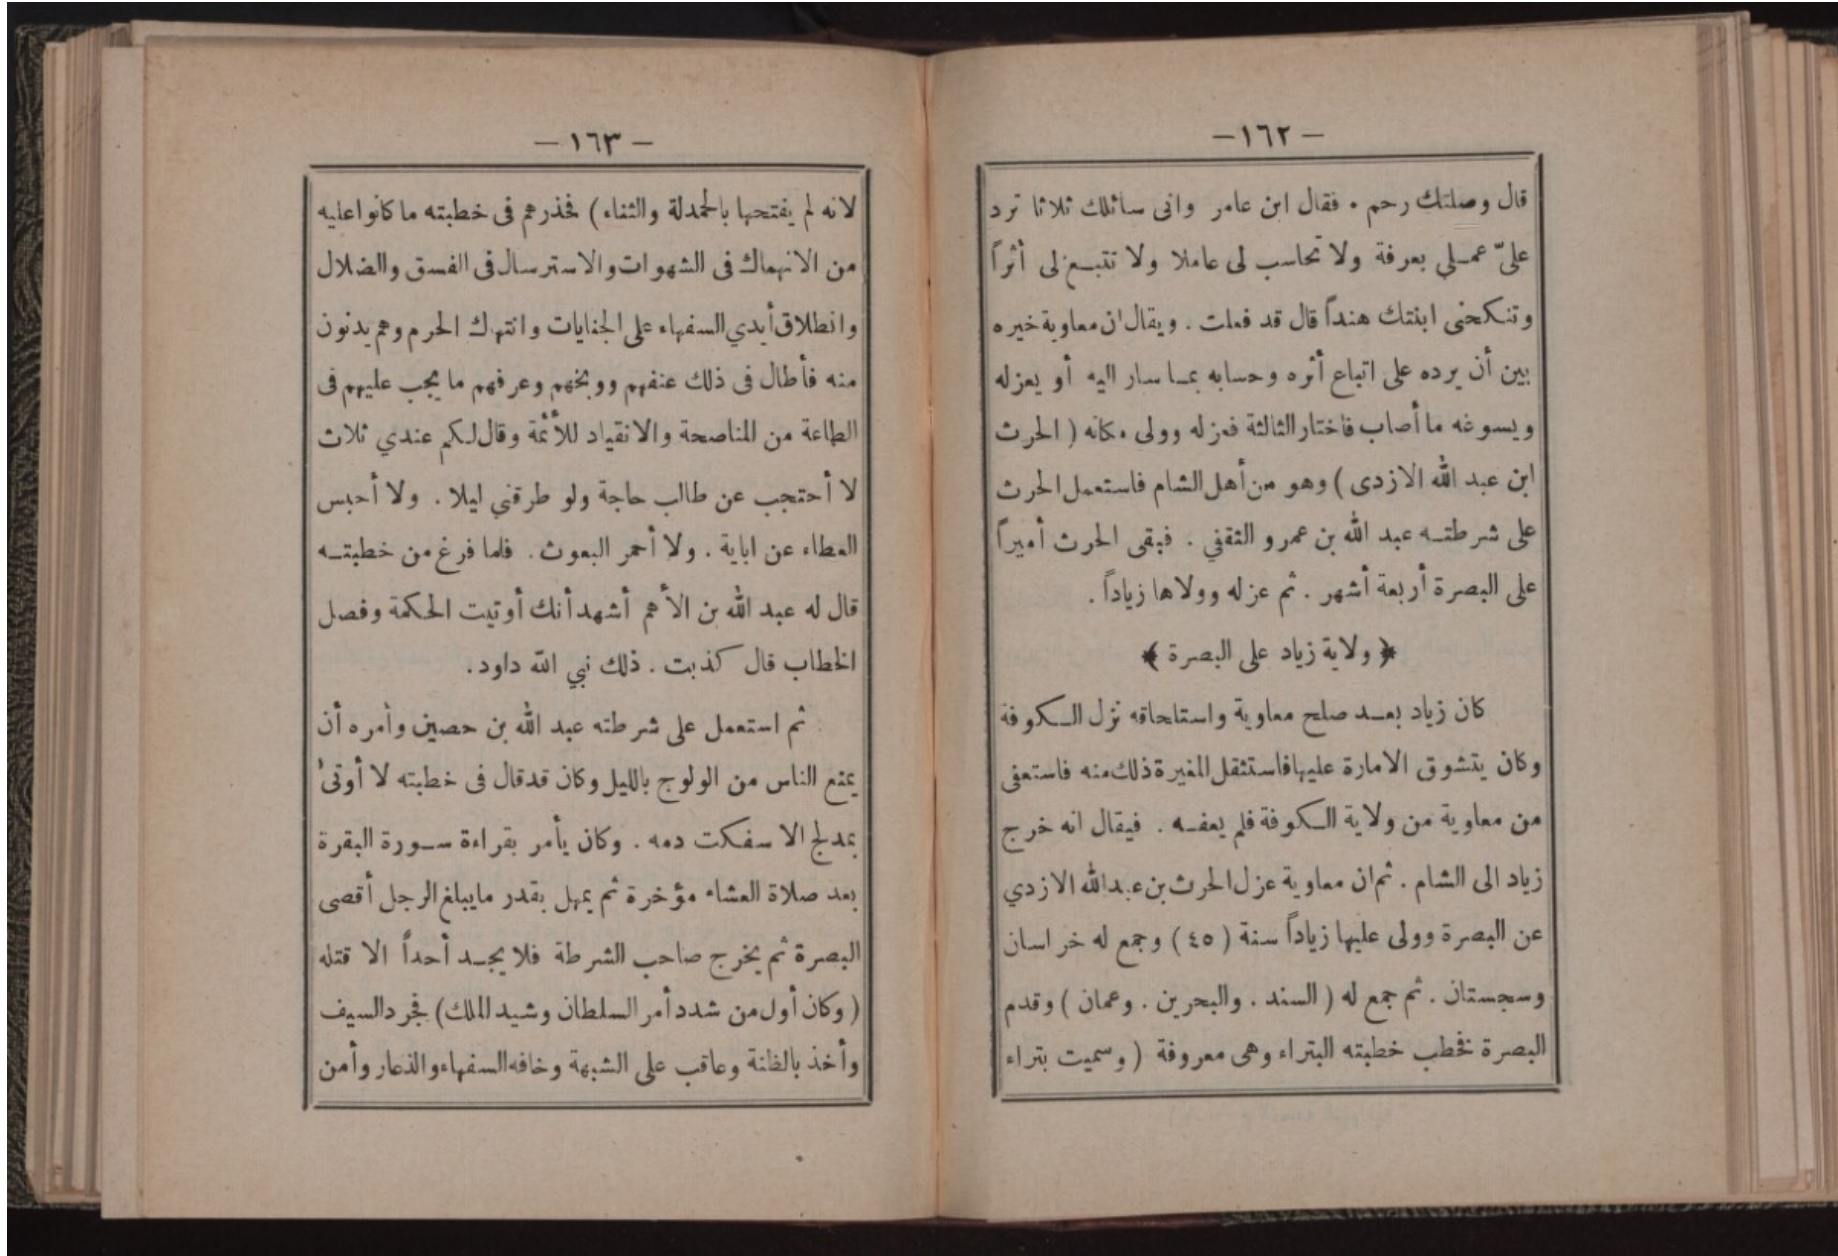 — ١٦٢ —
قال وصلتك رحم . فقال ابن عامر وانى سائلك ثلاثا ترد
علىّ عمـلي بعرفة ولا تحاسب لى عاملا ولا تتبـع لى أثراً
وتنكحنى ابنتك هنداً قال قد فعلت . ويقال ان معاوية خيره
بين أن يرده على اتباع أثره وحسابه بمـا سار اليه أو يعزله
ويسوغه ما أصاب فاختار الثالثة فعزله وولى مكانه ( الحرث
ابن عبد الله الازدى ) وهو من أهل الشام فاستعمل الحرث
على شرطتـه عبد الله بن عمرو الثقفي . فبقى الحرث أميراً
على البصرة أربعة أشهر . ثم عزله وولاها زياداً .
﴿ ولاية زياد على البصرة ﴾
كان زياد بعـد صلح معاوية واستلحاقه نزل الـكوفة
وكان يتشوق الامارة عليها فاستثقل المغيرة ذلك منه فاستعفى
من معاوية من ولاية الـكوفة فلم يعفـه . فيقال انه خرج
زياد الى الشام . ثم ان معاوية عزل الحرث بن عبد الله الازدي
عن البصرة وولى عليها زياداً سنة ( ٤٥ ) وجمع له خراسان
وسجستان . ثم جمع له ( السند . والبحرين . وعمان ) وقدم
البصرة فخطب خطبته البتراء وهى معروفة ( وسميت بتراء
— ١٦٣ —
لانه لم يفتحها بالحمدلة والثناء ) فحذرهم فى خطبته ما كانوا عليه
من الانهماك فى الشهوات والاسترسال فى الفسق والضلال
وانطلاق أيدي السفهاء على الجنايات وانتهاك الحرم وهم يدنون
منه فأطال فى ذلك عنفهم ووبخهم وعرفهم ما يجب عليهم فى
الطاعة من المناصحة والانقياد للأئمة وقال لـكم عندي ثلاث
لا أحتجب عن طالب حاجة ولو طرقني ليلا . ولا أحبس
العطاء عن ابابة . ولا أحمر البعوث . فلما فرغ من خطبتـه
قال له عبد الله بن الأهم أشهد أنك أوتيت الحكمة وفصل
الخطاب قال كذبت . ذلك نبي الله داود .
ثم استعمل على شرطته عبد الله بن حصين وأمره أن
يمنع الناس من الولوج بالليل وكان قد قال فى خطبته لا أوتى
بمدلج الا سفكت دمه . وكان يأمر بقراءة سـورة البقرة
بعد صلاة العشاء مؤخرة ثم يمهل بقدر ما يبلغ الرجل أقصى
البصرة ثم يخرج صاحب الشرطة فلا يجـد أحداً الا قتله
( وكان أول من شدد أمر السلطان وشيد الملك ) فجرد السيف
وأخذ بالظنة وعاقب على الشبهة وخافه السفهاء والذعار وأمن